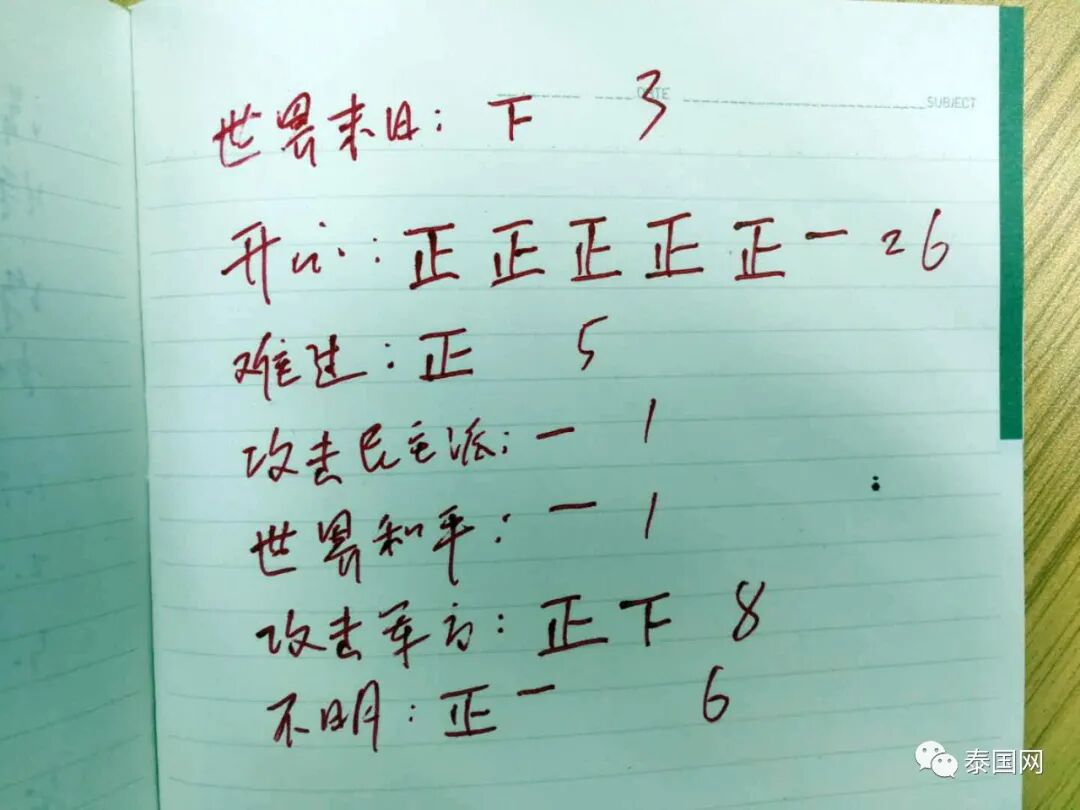 DATE
SUBJECT
世界末日：下 3
开心：正正正正正一 26
难过：正 5
攻击民主派：一 1
世界和平：一 1
攻击军方：正下 8
不明：正一 6
泰国网